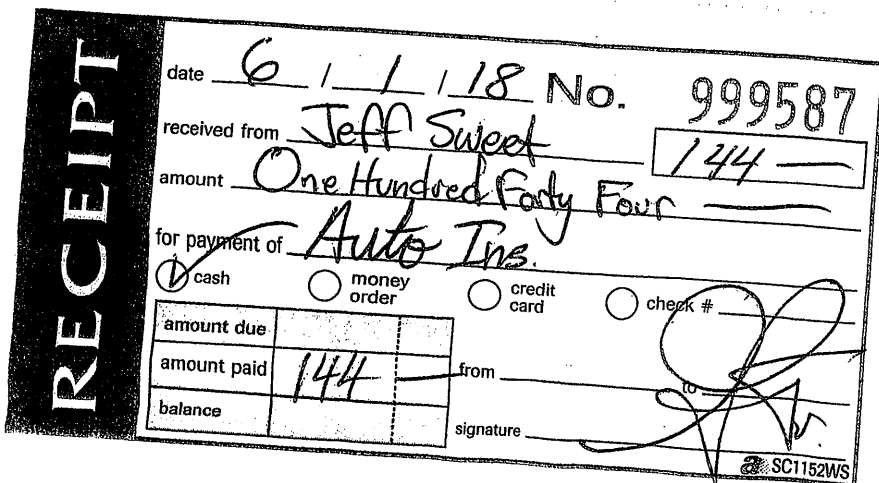 RECEIPT
date 6 / 1 / 18 No. 999587
received from Jeff Sweet 144 —
amount One Hundred Forty Four —
for payment of Auto Ins.
cash money order credit card check #
amount due
amount paid 144 — from to
balance
signature
a SC1152WS